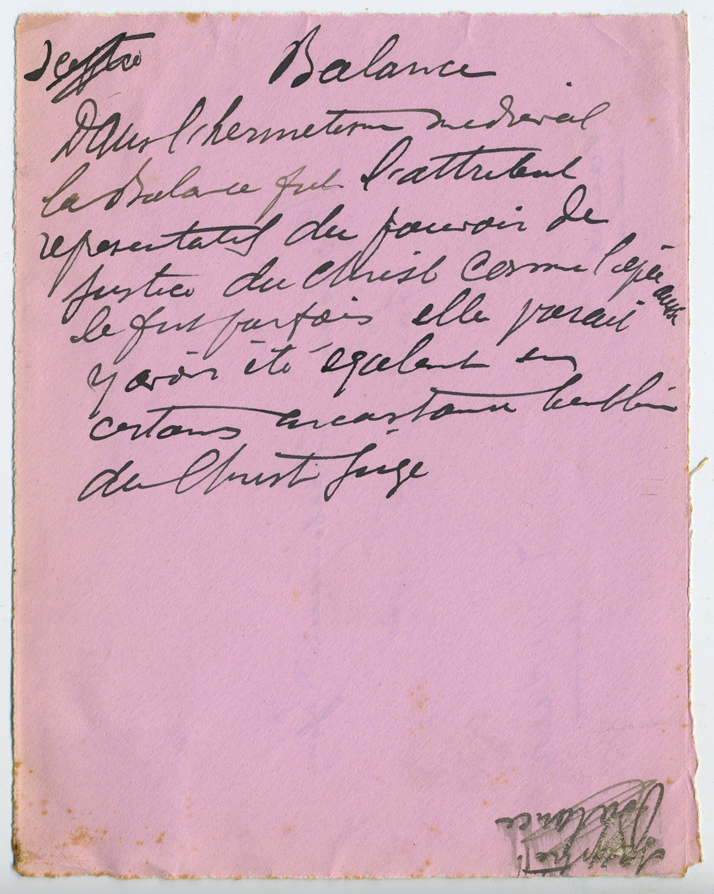 Sceptre Balance
Dans l'hermetisme medieval
la Balance fut l'attribut
representatif du pouvoir de
Justice du Christ comme l'épée aussi
le fut parfois elle parait
y avoir été egalement en
certains circonstances l'emblème
du Christ Juge
Balance
Sceptre